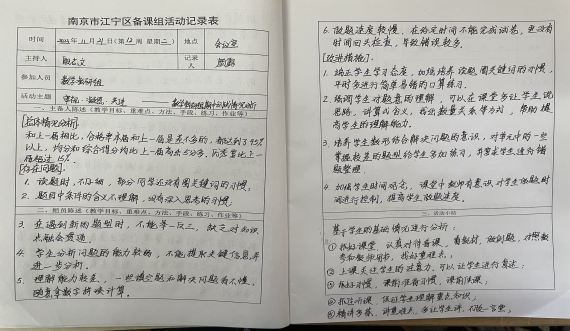 南京市江宁区备课组活动记录表
时间 年11月21日(第12周 星期二) 地点 会议室
主持人 记录人
参加人员 数学教研组
活动主题 数学教研组期中测试情况分析
一、主备人陈述(教学目标、重难点、方法、手段、练习、作业等)
[总体情况分析]
和上一届相比,合格率和上一届是差不多的,都达到了95%
以上,均分和综合得分均比上一届高出5分多,优秀率比上一
届超过15%.
[存在问题].
1. 读题时,不仔细,部分同学还没有圈关键词的习惯.
2. 题目中条件的含义不理解,没有深入思考的习惯.
二、组员陈述(教学目标、重难点、方法、手段、练习、作业等)
3. 在遇到新的题型时,不能举一反三,缺乏对知识
点融会贯通.
4. 学生分析问题的能力较弱,不能提取关键信息并
进一步分析.
5. 理解能力较差,一些填空题和解决问题看不懂,
随意拿数字拼凑计算.
6. 做题速度较慢,在给定时间不能完成试卷,更没有
时间回头检查,导致错误较多.
[改进措施]:
1. 端正学生学习态度,加强培养读题圈关键词的习惯,
平时多进行简单易错的口算练习.
2. 强调学生对题意的理解,可以在课堂多让学生说
思路,讲算式含义,画出数量关系等方式,帮助提
高学生的理解能力.
3. 培养学生数形结合解决问题的意识,对单元中的一些
掌握较差的题型给学生多加练习,并要求学生进行错
题整理.
4. 加强学生时间观念,课堂中教师有意识对学生做题时
间进行控制,提高学生做题速度.
三、活动小结
基于学生的基础情况进行分析:
① 抓好课堂,认真对待备课,看教材,做例题,对照教
参和教师用书,找好重难点;
② 上课关注学生的注意力,可以让学生进行复述;
③ 抓好习惯,课前准备习惯,课前候课;
④ 抓住听课,保证学生理解重点知识;
⑤ 精讲多练,讲重难点,多让学生讲,不做一言堂;